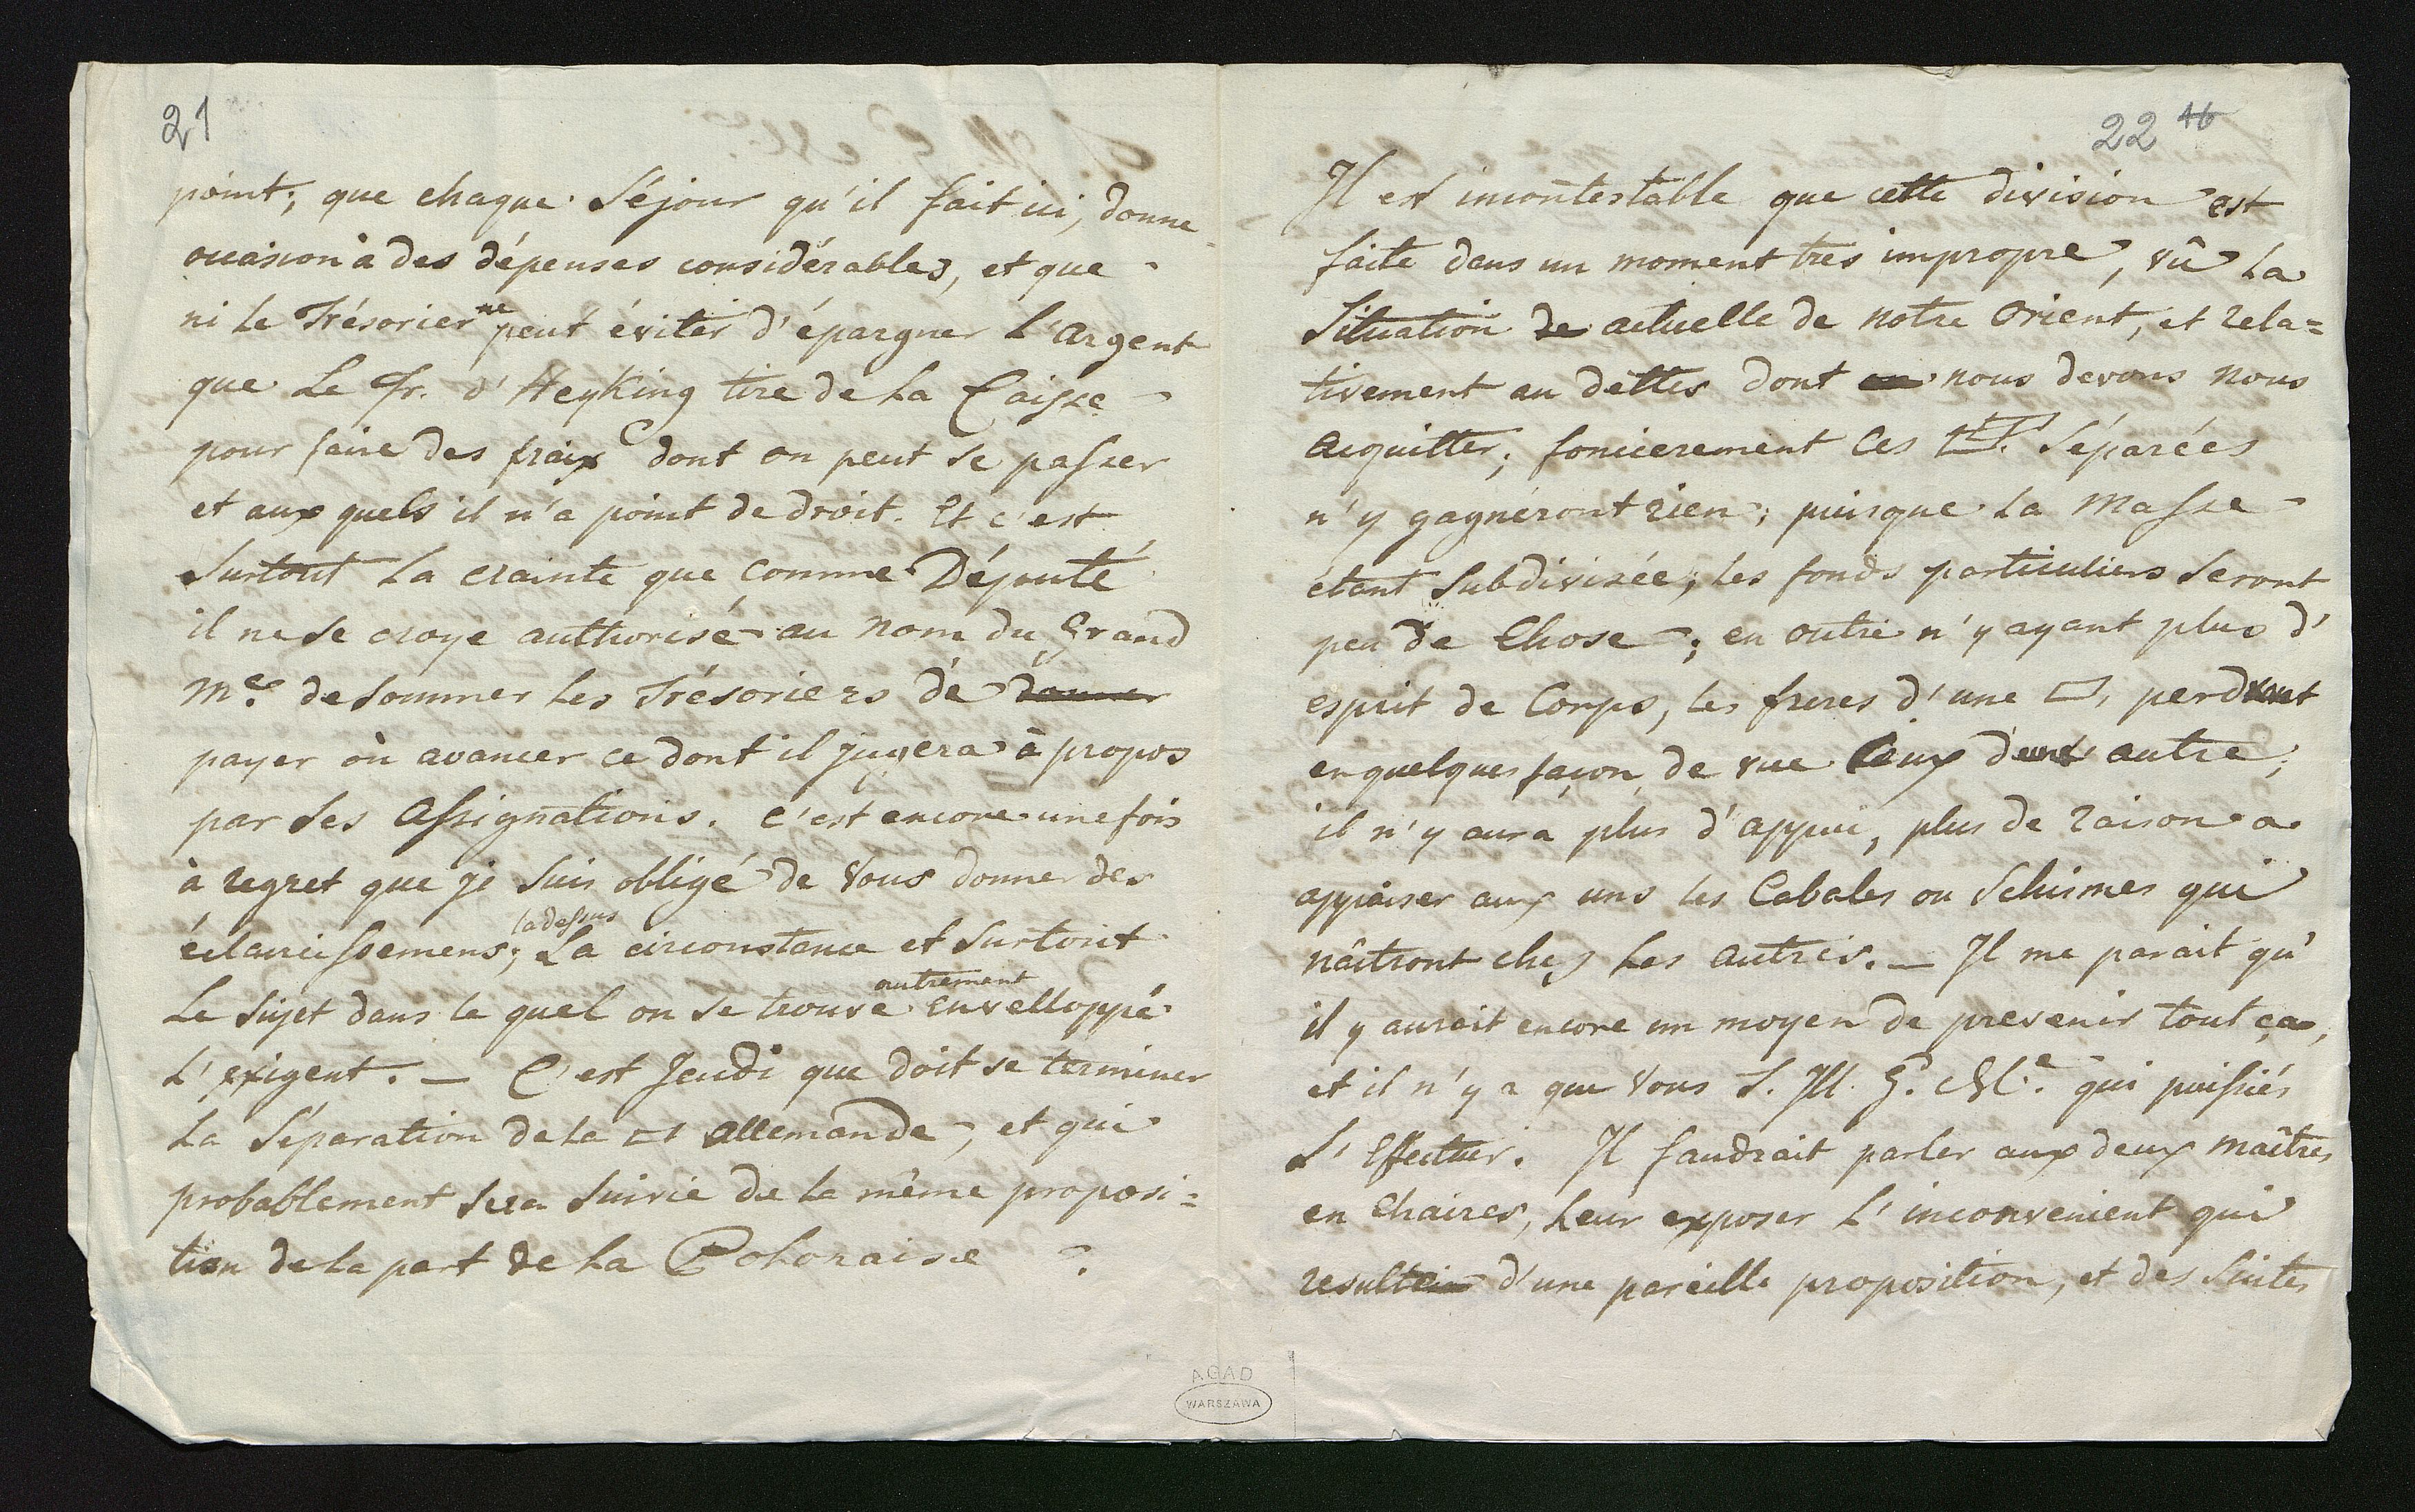 21
point; que chaque Séjour qu'il fait ici, donne
occasion à des dépenses considérables, et que
ni le Trésorier ne peut éviter d'épargner l'Argent
que Le Fr. d'Heyking tire de la Caisse
pour faire des fraix dont on peut se passer
et aux quels il n'a point de droit. Et c'est
Surtout la crainte que comme Député
il ne se croye authorisé au nom du Grand
Me. de sommer les Trésoriers de donner
payer où avancer ce dont il jugera à propos
par ses Assignations. C'est encore une fois
à regret que je suis obligé de Vous donner des
ladessus
éclaircissemens; La circonstance et surtout
autrement
Le Sujet dans le quel on se trouve envelloppé
L'exigent. — C'est Jeudi que doit se terminer
La Séparation de la ▭ allemande, et qui
probablement sera suivie de la même proposi=
tion de la part de la Polonaise
22 46
Il est incontestable que cette division est
faite dans un moment tres impropre, vû la
Situation de actuelle de notre Orient, et rela=
tivement au dettes dont nous devons nous
acquitter; foncierement les ▭▭. Séparées
n'y gagneront rien; puisque la Masse
étant Subdivisée, les fonds particuliers seront
peu de Chose; en outre n'y ayant plus d'
esprit de Corps, les freres d'une ▭, perdront
en quelques façon de vue Ceux d'une autre;
il n'y aura plus d'appui, plus de raison a
appaiser aux uns les Cabales ou Schismes qui
naîtront chez les autres. — Il me parait qu'
il y aurait encore un moyen de prevenir tout ça,
et il n'y a que Vous S. Ill. G. Me. qui puissiés
L'Effectuer. Il faudrait parler aux deux maîtres
en Chaires, Leur exposer L'inconvenient qui
result d'une pareille proposition, et des Suites
AGAD
WARSZAWA